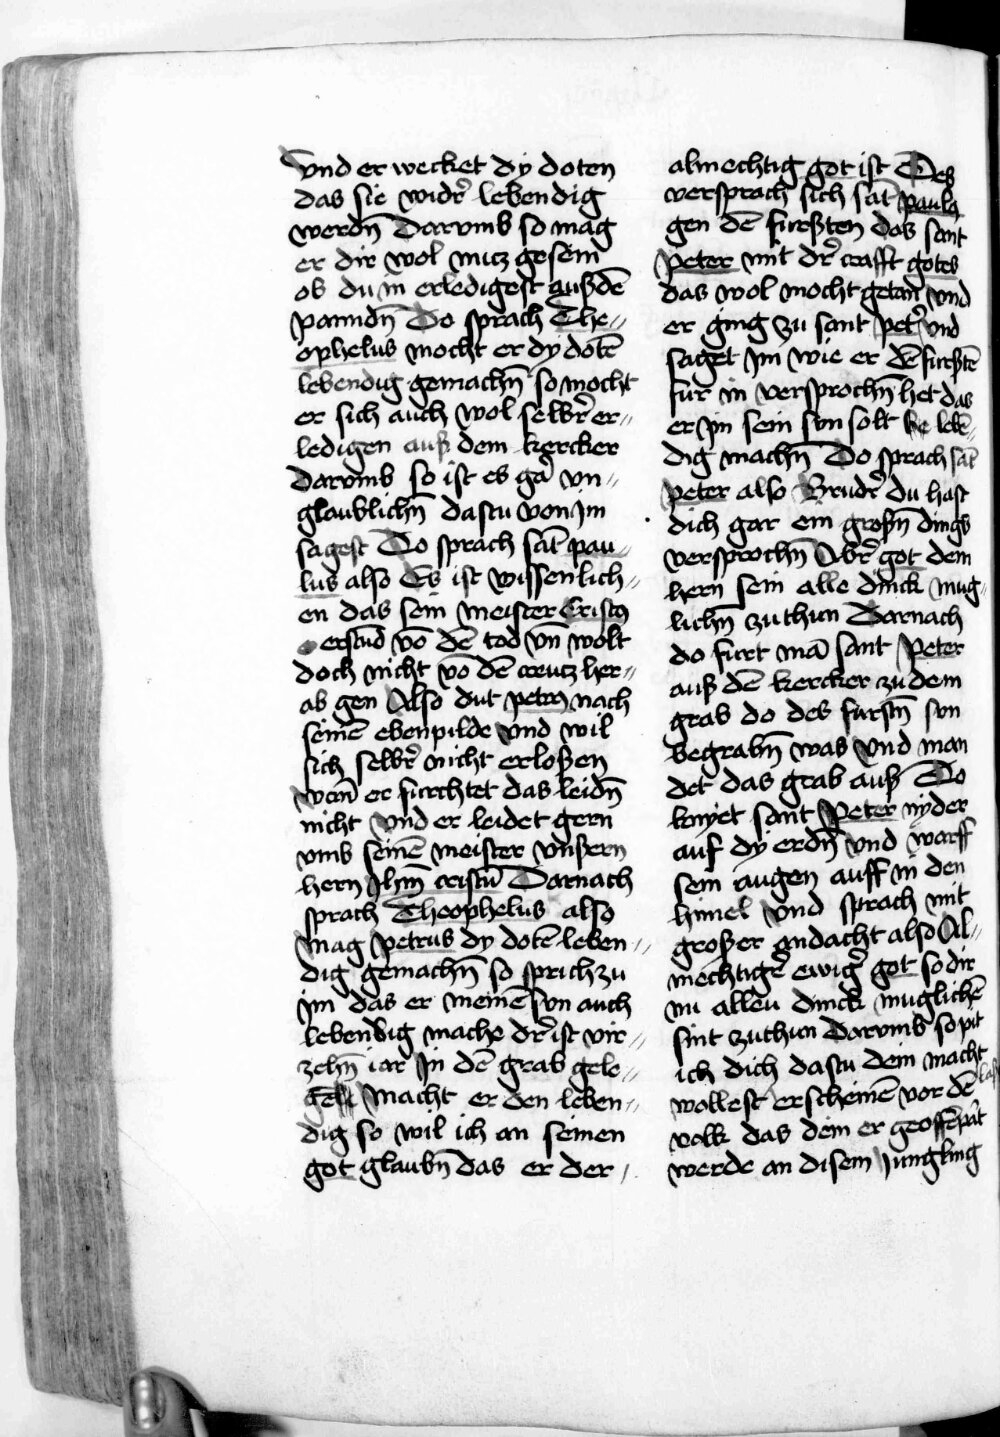 Vnd er wecket dy doten
das sie widr̃ lebendig
werdn̄ Darvmb so mag
er dir wol nucz gesein
ob du in erledigest auß dē
panndn̄ Do sprach The〃
ophelus mocht er dy dotē
lebendig gemachn̄ so mocht
er sich auch wol selbr̃ er〃
ledigen auß dem kercker
Darvmb so ist es gar̃ vn〃
glaublichn̄ dastu von im
sagest Do sprach sāt pau〃
lus also Es ist wissenlich〃
en das sein meister Cristꝯ
erstūd vō dē tod vn̄ wolt
doch nicht vō dē creucz her〃
ab gen Also dut petrꝯ nach
seinē ebenpilde vnd wil
sich selbr̃ nicht erloßen
wān er furchtet das leidn̄
nicht vnd er leidet gern
vmb seinē meister vnßern
hern Jhm̄ cristū Darnach
sprach Theophelus also
mag petrus dy dotē leben〃
dig gemachn̄ so sprich zu
im das er meinē sun auch
lebendig mache dr̃ ist vir〃
zehn̄ iar in dē grab gele〃
gē macht er den leben〃
dig so wil ich an seinen
got glaubn̄ das er der
almechtig got ist Des
versprach sich sāt paulꝯ
gen dē furßten das sant
Peter mit dr̃ crafft gotes
das wol mocht getan vnd
er ging zu sant petr̃ vnd
saget im wie er dē furßtē
fur in versprochn̄ het das
er im sein sun solt lebē〃
dig machn̄ Do sprach sāt
peter also Brudr̃ du hast
dich gar ein großn̄ dings
versprochn̄ Abr̃ got dem
hern sein alle dinck mug〃
lichn̄ zu thun Darnach
do furt mā sant Peter
auß dē kercker zu dem
grab do des furstn̄ sun
begrabn̄ was vnd man
det das grab auß Do
knyet sant Peter nyder
auf dy erdn̄ vnd warff
sein augen auff in den
himel vnd sprach mit
großer andacht also Al〃
mechtigr̃ ewigr̃ got so dir
nu allen dinck muglichē
sint zu thun Darvmb so pit
ich dich dastu dein macht
wollest erscheinē vor dē
volk das dein er geoffēpāt
werde an disem Jungling